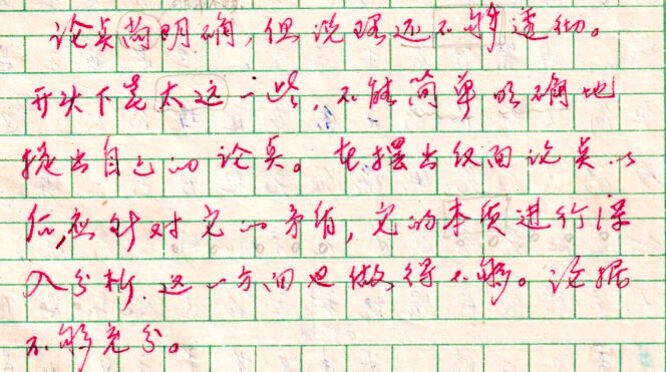 论点尚明确，但说理还不够透彻。
开头下笔太远一些，不能简单明确地
提出自己的论点。在摆出反面论点以
后，应针对它的矛盾，它的本质进行深
入分析。这一方面也做得不够。论据
不够充分。